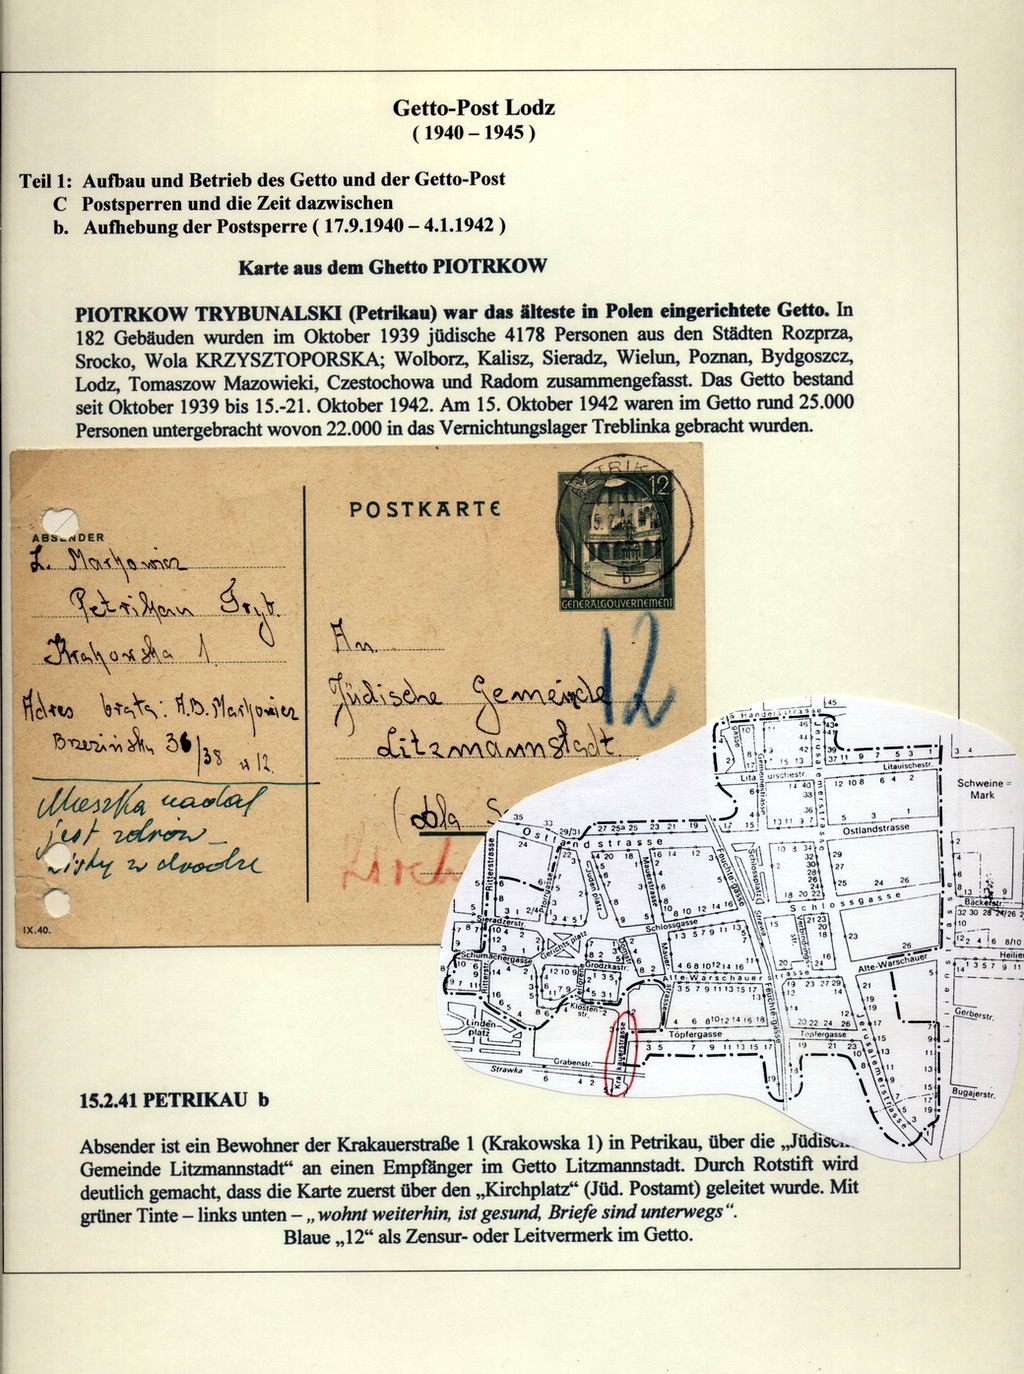 Getto-Post Lodz
( 1940 – 1945 )
Teil 1: Aufbau und Betrieb des Getto und der Getto-Post
C Postsperren und die Zeit dazwischen
b. Aufhebung der Postsperre ( 17.9.1940 – 4.1.1942 )
Karte aus dem Ghetto PIOTRKOW
PIOTRKOW TRYBUNALSKI (Petrikau) war das älteste in Polen eingerichtete Getto. In
182 Gebäuden wurden im Oktober 1939 jüdische 4178 Personen aus den Städten Rozprza,
Srocko, Wola KRZYSZTOPORSKA; Wolborz, Kalisz, Sieradz, Wielun, Poznan, Bydgoszcz,
Lodz, Tomaszow Mazowieki, Czestochowa und Radom zusammengefasst. Das Getto bestand
seit Oktober 1939 bis 15.-21. Oktober 1942. Am 15. Oktober 1942 waren im Getto rund 25.000
Personen untergebracht wovon 22.000 in das Vernichtungslager Treblinka gebracht wurden.
POSTKARTE
12
GENERALGOUVERNEMENT
b
ABSENDER
L. Markowicz
Petrikau Tryb.
Krakowska 1
Adres brata: A.B. Markowicz
Brzezińska 36/38 w 12.
Mieszka nadal
jest zdrów
listy w drodze
IX.40.
An
Jüdische Gemeinde
Litzmannstadt
(dla
12
Kirch
Handelsstrasse
Litauischestr.
Schweine=
Mark
Ostlandstrasse
Ostlandstrasse
Ritterstrasse
Judenplatz
Mauerstrasse
Feuchte-gasse
Jerusalemerstrasse
Schlossgasse
Schlossgasse
Bäckerstr.
Sieradzerstr.
Gerichtsplatz
Schumachergasse
Grodzkastr.
Alte-Warschauerstrasse
Alte-Warschauer
Klosterstr.
Lindenplatz
Krakauerstrasse
Töpfergasse
Töpfergasse
Gerberstr.
Grabenstr.
Strawka
Jerusalemerstrasse
Bugajerstr.
15.2.41 PETRIKAU b
Absender ist ein Bewohner der Krakauerstraße 1 (Krakowska 1) in Petrikau, über die „Jüdisc
Gemeinde Litzmannstadt“ an einen Empfänger im Getto Litzmannstadt. Durch Rotstift wird
deutlich gemacht, dass die Karte zuerst über den „Kirchplatz“ (Jüd. Postamt) geleitet wurde. Mit
grüner Tinte – links unten – „wohnt weiterhin, ist gesund, Briefe sind unterwegs“.
Blaue „12“ als Zensur- oder Leitvermerk im Getto.